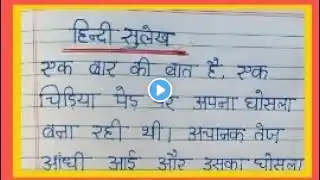 हिन्दी सुलेख
एक बार की बात है, एक
चिड़िया पेड़ पर अपना घोसला
बना रही थी। अचानक तेज
आंधी आई और उसका घोसला